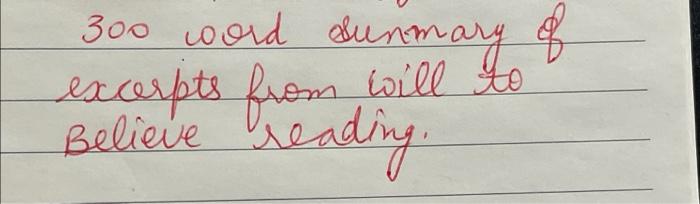 300 word summary of
excerpts from will to
Believe reading.